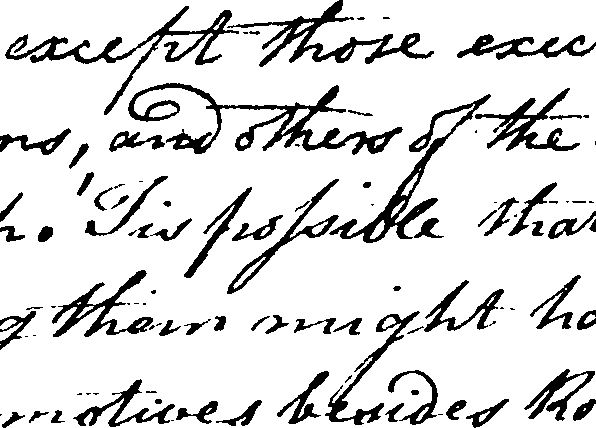 except those exec
ns, and others of the
h. 'Tis poſsible that
g them might ha
motives besides Ro